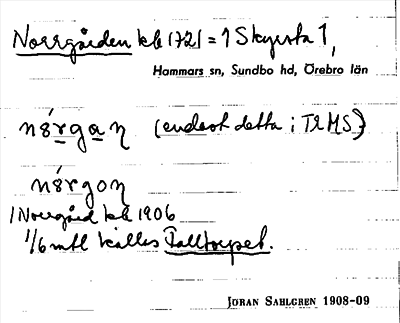 Norrgården kb 1721 = 1 Skyrsta 1,
Hammars sn, Sundbo hd, Örebro län
nórgan (endast detta i TRMS)
nórgon
1 Norrgård kb 1906
1/6 mtl kallas Falltorpet.
JÖRAN SAHLGREN 1908-09